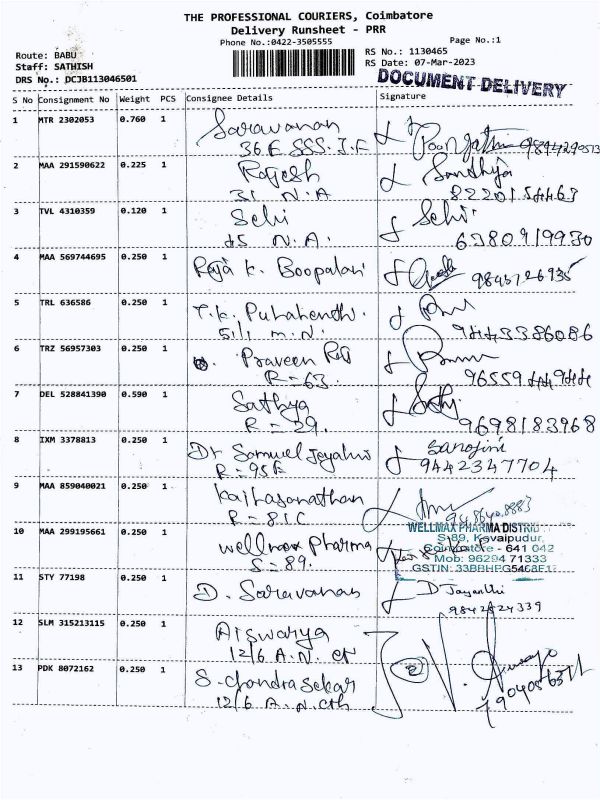 THE PROFESSIONAL COURIERS, Coimbatore
Delivery Runsheet - PRR
Phone No.:0422-3505555
Page No.:1
Route: BABU
Staff: SATHISH
DRS No.: DCJB113046501
RS No.: 1130465
RS Date: 07-Mar-2023
DOCUMENT DELIVERY
S No Consignment No Weight PCS Consignee Details Signature
1 MTR 2302053 0.760 1 Saravanan
36.E SSS. I.F
2 MAA 291590622 0.225 1 Rajesh Sandhya
31 N.A 8220154463
3 TVL 4310359 0.120 1 Selvi Selvi
45 N.A. 6380919930
4 MAA 569744695 0.250 1 Raja K. Boopalan
5 TRL 636586 0.250 1 T.K.
51/1 m.N. 9443386086
6 TRZ 56957303 0.250 1 Praveen Raj
R=63. 9655944944
7 DEL 528841390 0.590 1 Sathya
R=29. 9698183968
8 IXM 3378813 0.250 1 Dr Samuel Sarojini
R=95E 9442347704
9 MAA 859040021 0.250 1 Kailasanathan
R=81C
10 MAA 299195661 0.250 1 Wellmax Pharma WELLMAX PHARMA DISTRIB
S=89. S-89, Kovaipudur,
Coimbatore - 641 042
Mob: 96294 71333
GSTIN:
11 STY 77198 0.250 1 D. Saravanan D Jayanthi
12 SLM 315213115 0.250 1 Aiswarya
12/6 A.N.
13 PDK 8072162 0.250 1 S. Chandra Sekar
12/6 A.N.